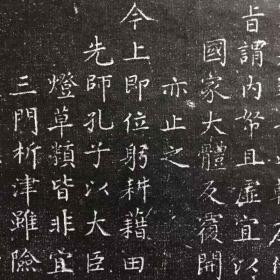 旨謂内帑且虛宜以
國家大體及覆開
亦止之
今上即位躬耕籍田
先師孔子以大臣
燈草類皆非宜
三門析津雖險